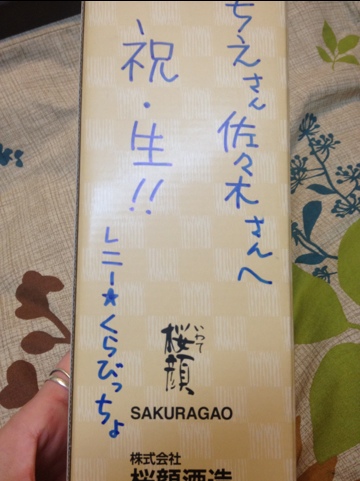 ちえさん佐々木さんへ
祝・生!!
レニー★くらびっちょ
いわて
桜顔
SAKURAGAO
株式会社
桜顔酒造